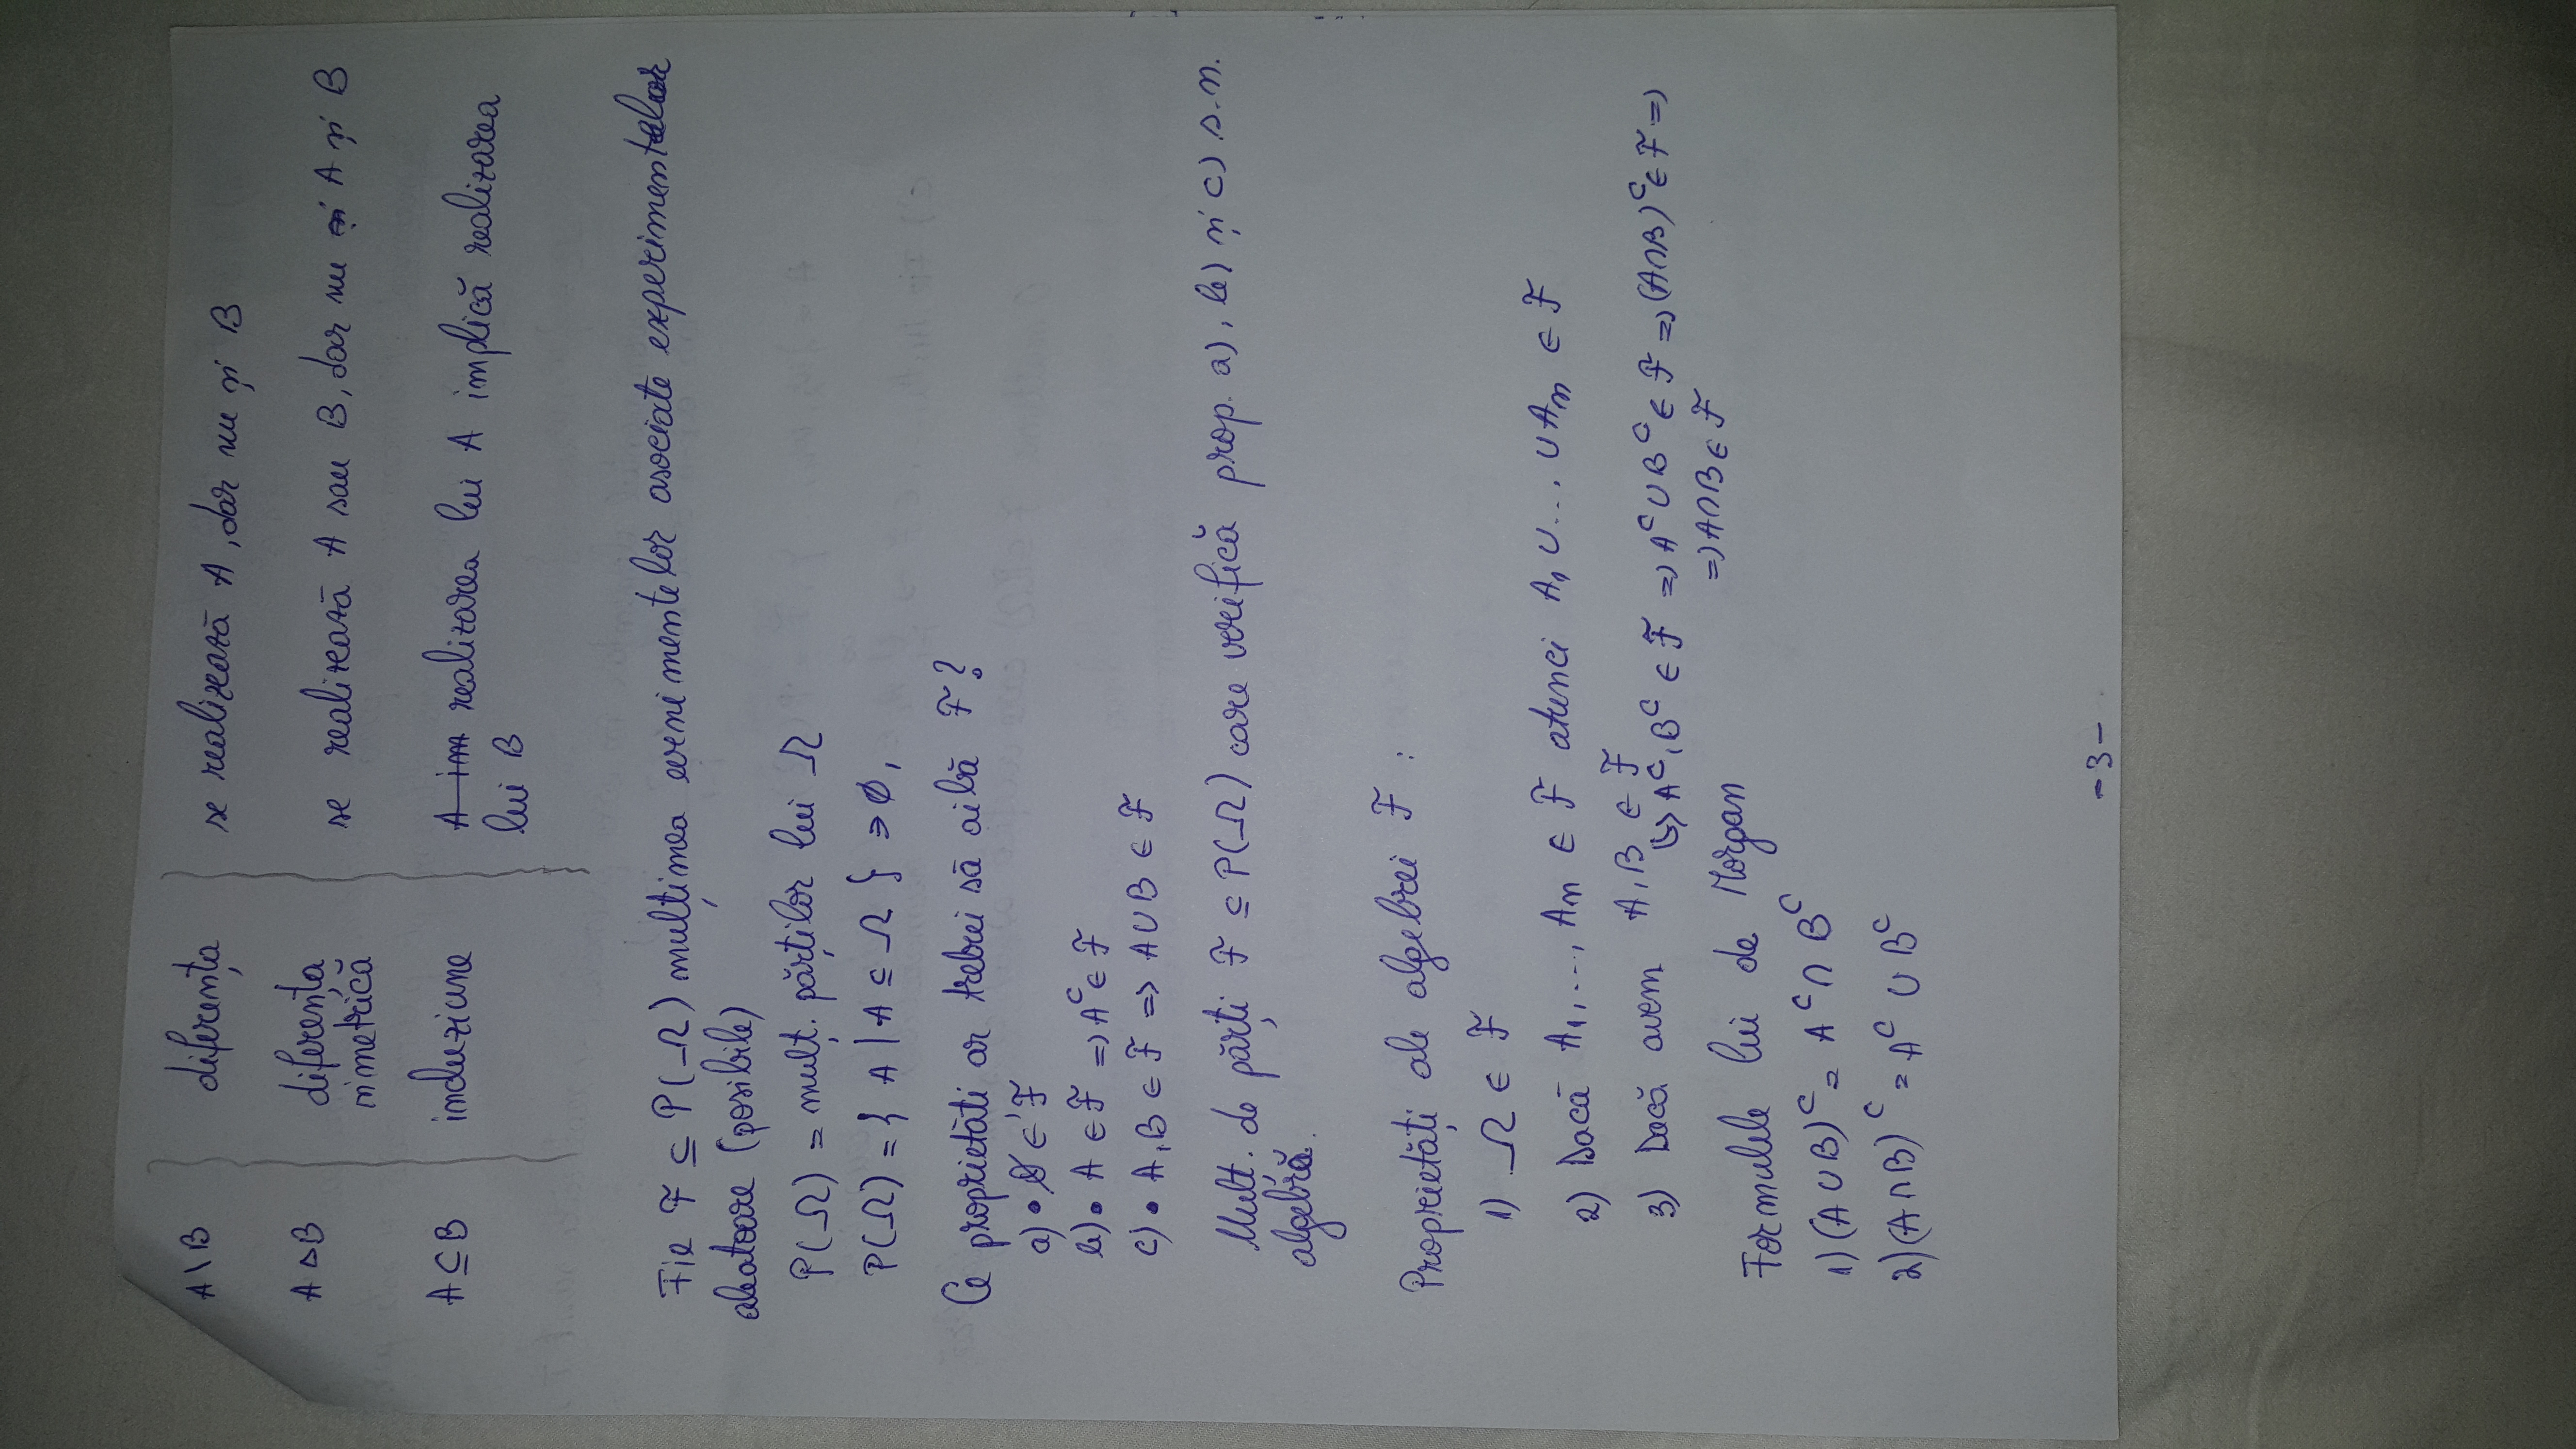 A \ B diferența se realizează A, dar nu și B
A Δ B diferența
simetrică se realizează A sau B, dar nu și A și B
A ⊆ B incluziune A im realizarea lui A implică realizarea
lui B
Fie F ⊆ P(Ω) mulțimea evenimentelor asociate experimentelor
aleatoare (posibile)
P(Ω) = mulț. părților lui Ω
P(Ω) = { A | A ⊆ Ω } ∋ ∅,
Ce proprietăti ar trebui să aibă F?
a) • ∅ ∈ F
b) • A ∈ F => A^C ∈ F
c) • A, B ∈ F => A ∪ B ∈ F
Mulț. de părți F ⊆ P(Ω) care verifică prop. a), b) și c) s.n.
algebră.
Proprietăți ale algebrei F :
1) Ω ∈ F
2) Dacă A1, ..., An ∈ F atunci A1 ∪ ... ∪ An ∈ F
3) Dacă avem A, B ∈ F
(b)=> A^C, B^C ∈ F => A^C ∪ B^C ∈ F => (A ∩ B)^C ∈ F =>
=> A ∩ B ∈ F
Formulele lui de Morgan
1) (A ∪ B)^C = A^C ∩ B^C
2) (A ∩ B)^C = A^C ∪ B^C
- 3 -